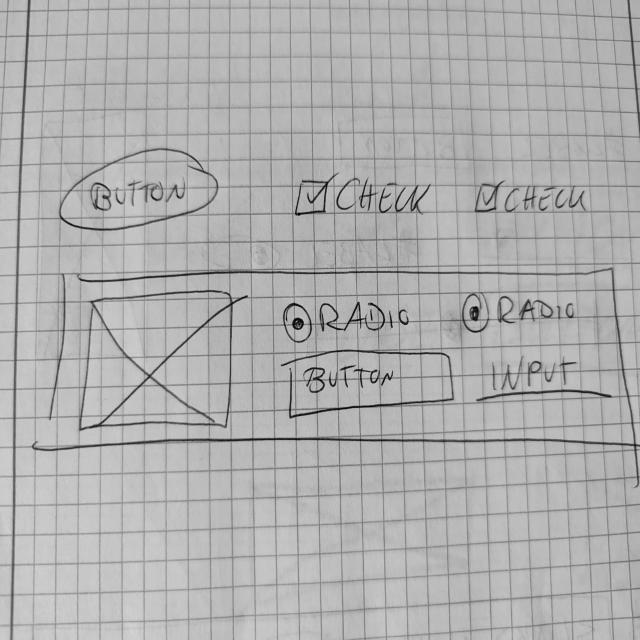 BUTTON CHECK CHECK
RADIO RADIO
BUTTON INPUT